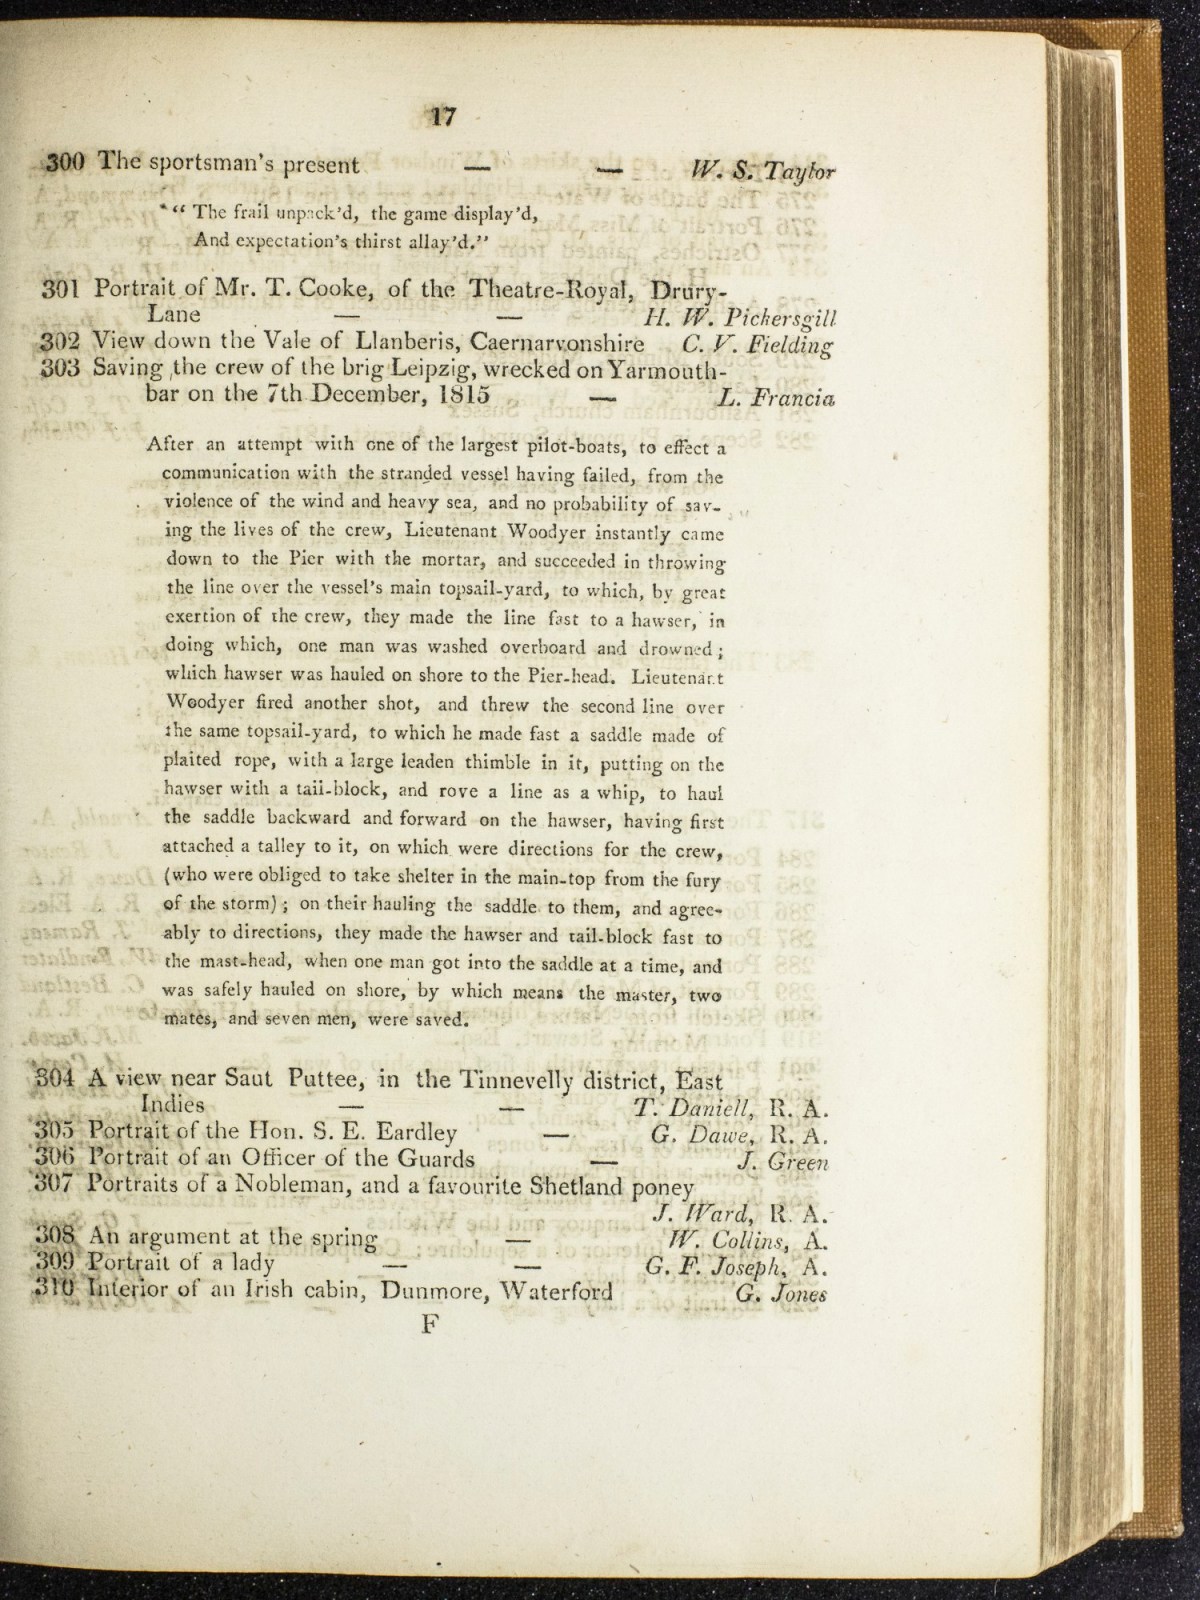 17
300 The sportsman's present — — W. S. Taylor
"The frail unpack'd, the game display'd,
And expectation's thirst allay'd."
301 Portrait of Mr. T. Cooke, of the Theatre-Royal, Drury-
Lane — — H. W. Pickersgill
302 View down the Vale of Llanberis, Caernarvonshire C. V. Fielding
303 Saving the crew of the brig Leipzig, wrecked on Yarmouth-
bar on the 7th December, 1815 — L. Francia
After an attempt with one of the largest pilot-boats, to effect a
communication with the stranded vessel having failed, from the
violence of the wind and heavy sea, and no probability of sav-
ing the lives of the crew, Lieutenant Woodyer instantly came
down to the Pier with the mortar, and succeeded in throwing
the line over the vessel's main topsail-yard, to which, by great
exertion of the crew, they made the line fast to a hawser, in
doing which, one man was washed overboard and drowned;
which hawser was hauled on shore to the Pier-head. Lieutenant
Woodyer fired another shot, and threw the second line over
the same topsail-yard, to which he made fast a saddle made of
plaited rope, with a large leaden thimble in it, putting on the
hawser with a tail-block, and rove a line as a whip, to haul
the saddle backward and forward on the hawser, having first
attached a talley to it, on which were directions for the crew,
(who were obliged to take shelter in the main-top from the fury
of the storm); on their hauling the saddle to them, and agree-
ably to directions, they made the hawser and tail-block fast to
the mast-head, when one man got into the saddle at a time, and
was safely hauled on shore, by which means the master, two
mates, and seven men, were saved.
304 A view near Saut Puttee, in the Tinnevelly district, East
Indies — — T. Daniell, R. A.
305 Portrait of the Hon. S. E. Eardley — G. Dawe, R. A.
306 Portrait of an Officer of the Guards — J. Green
307 Portraits of a Nobleman, and a favourite Shetland poney
J. Ward, R. A.
308 An argument at the spring — W. Collins, A.
309 Portrait of a lady — — G. F. Joseph, A.
310 Interior of an Irish cabin, Dunmore, Waterford G. Jones
F